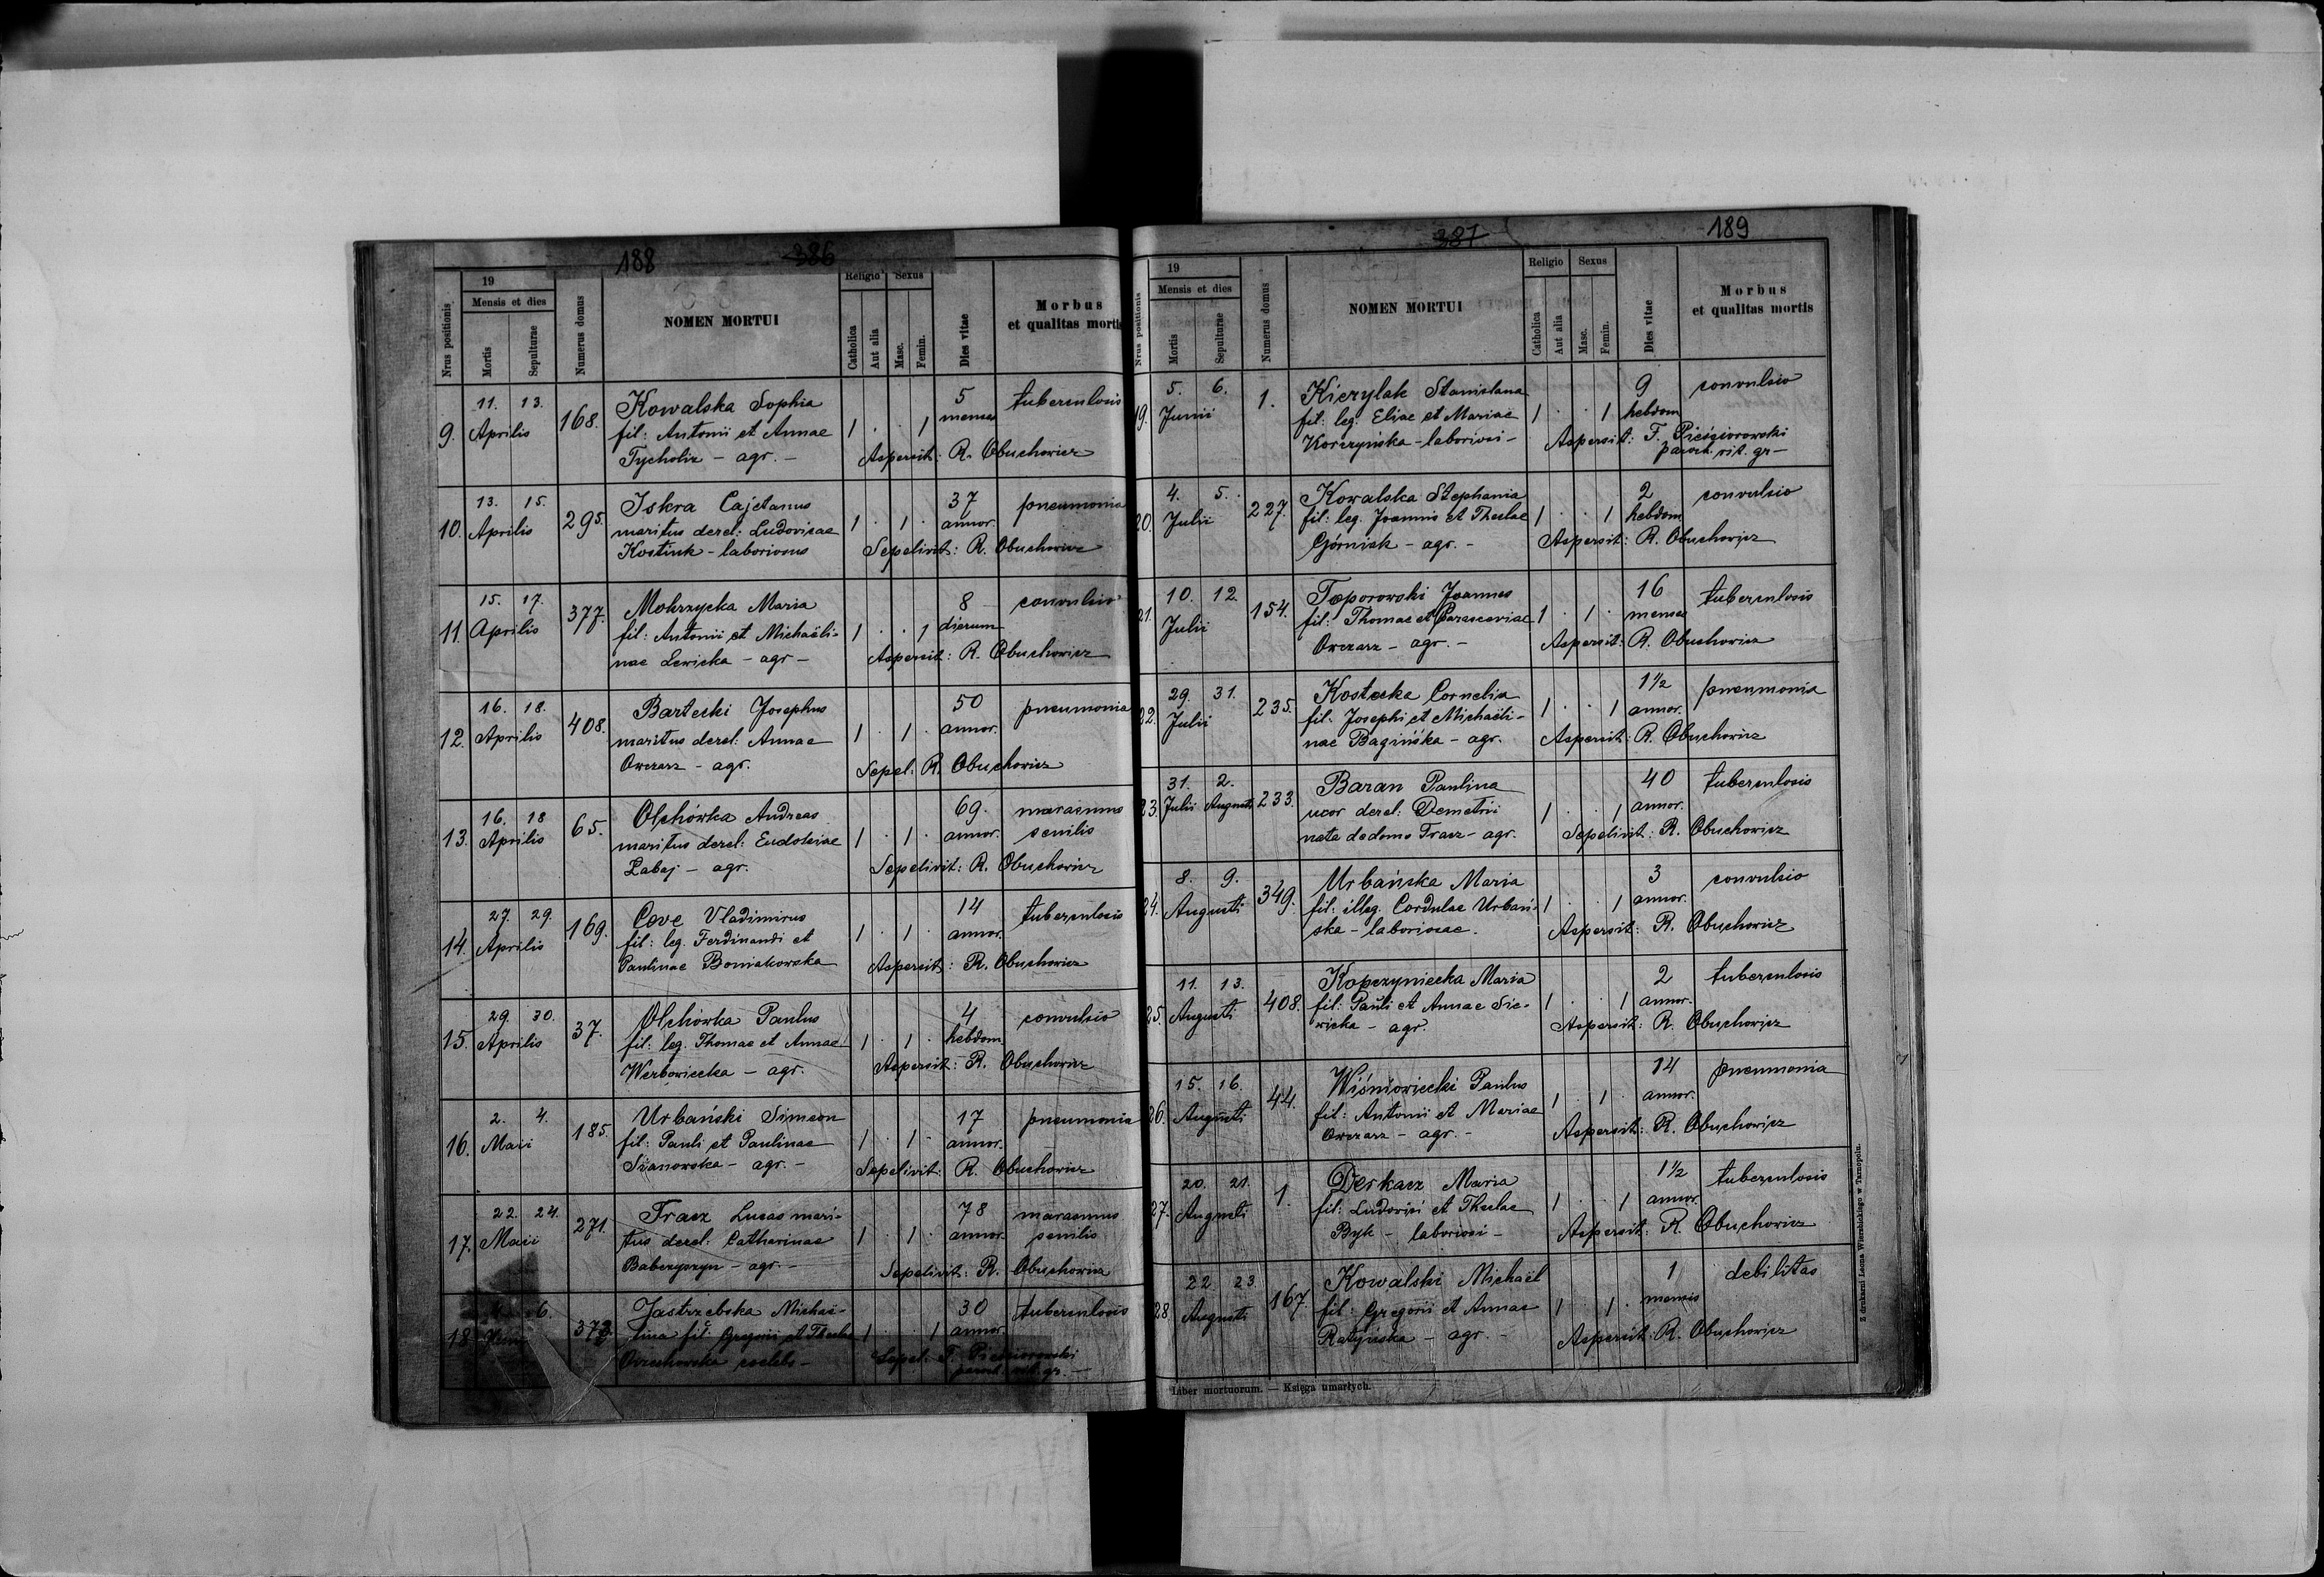 188 386
19
Religio Sexus
Nrus positionis Mensis et dies Mortis Sepulturae Numerus domus NOMEN MORTUI Catholica Aut alia Masc. Femin. Dies vitae Morbus et qualitas mortis
9. 11. 13. Aprilis 168. Kowalska Sophia 1 . . 1 5 menses tuberculosis
fil: Antonii et Annae
Tycholiz - agr. - Aspersit: R. Obuchowicz
10. 13. 15. Aprilis 295. Iskra Cajetanus 1 . 1 . 37 annor. pneumonia
maritus derel: Ludovicae
Kostiuk - laboriosus Sepelivit: R. Obuchowicz
11. 15. 17. Aprilis 377. Mokrzycka Maria 1 . . 1 8 dierum convulsio
fil: Antonii et Michaëli-
nae Lewicka - agr - Aspersit: R. Obuchowicz
12. 16. 18. Aprilis 408. Bartecki Josephus 1 . 1 . 50 annor. pneumonia
maritus derel: Annae
Owczarz - agr. Sepel: R. Obuchowicz
13. 16. 18 Aprilis 65. Olchówka Andreas 1 . 1 . 69. annor. marasmus senilis
maritus derel: Eudokiae
Zabaj - agr. Sepelivit: R. Obuchowicz
14. 27. 29. Aprilis 169. Cove Vladimirus 1 . 1 . 14 annor. tuberculosis
fil: leg. Ferdinandi et
Paulinae Boniakowska Aspersit: R. Obuchowicz
15. 29. 30. Aprilis 37. Olchówka Paulus 1 . 1 . 4 hebdom convulsio
fil: leg. Thomae et Annae
Werbowiecka - agr. Aspersit: R. Obuchowicz
16. 2. 4. Maii 185. Urbański Simeon 1 . 1 . 17 annor. pneumonia
fil: Pauli et Paulinae
Sianowska - agr. - Sepelivit: R. Obuchowicz
17. 22. 24. Maii 271. Tracz Lucas mari- 1 . 1 . 78 annor. marasmus senilis
tus derel: Catharinae
Babczyszyn - agr. - Sepelivit: R. Obuchowicz
18 6. Junii Jastrzebska Michae- 1 . . 1 30 annor. tuberculosis
lina fil: Gregorii et Theclae
Orzechowska coelebs - Sepel: F. Pieściorowski
paroch. rit. gr. -
387 189
19
Religio Sexus
Nrus positionis Mensis et dies Mortis Sepulturae Numerus domus NOMEN MORTUI Catholica Aut alia Masc. Femin. Dies vitae Morbus et qualitas mortis
19. 5. 6. Junii 1. Kierylak Stanislava 1 . . 1 9 hebdom convulsio
fil: leg. Eliae et Mariae
Korczyńska - laboriosi - Aspersit: F. Pieściorowski
paroch. rit. gr -
20. 4. 5. Julii 227. Kowalska Stephania 1 . . 1 2 hebdom convulsio
fil: leg. Joannis et Theclae
Górniak - agr. - Aspersit: R. Obuchowicz
21. 10. 12. Julii 154. Toporowski Joannes 1 . 1 . 16 menses tuberculosis
fil: Thomae et Parasceviae
Owczarz - agr. - Aspersit: R. Obuchowicz
22. 29. 31. Julii 235. Kostecka Cornelia 1 . . 1 1½ annor. pneumonia
fil: Josephi et Michaëli-
nae Bagińska - agr. Aspersit: R. Obuchowicz
23. 31. Julii 2. Augusti 233. Baran Paulina 1 . . 1 40 annor. tuberculosis
uxor derel: Demetrii
nata dedomo Tracz - agr. Sepelivit: R. Obuchowicz
24. 8. 9. Augusti 349. Urbańska Maria 1 . . 1 3 annor. convulsio
fil: illeg. Cordulae Urbań-
ska - laboriosae. Aspersit: R. Obuchowicz
25. 11. 13. Augusti 408. Kopczyniecka Maria 1 . . 1 2 annor. tuberculosis
fil: Pauli et Annae Sie-
wicka - agr. Aspersit: R. Obuchowicz
26. 15. 16. Augusti 44. Wiśniowiecki Paulus 1 . 1 . 14 annor. pneumonia
fil: Antonii et Mariae
Owczarz - agr. - Aspersit: R. Obuchowicz
27. 20. 21. Augusti 1. Derkacz Maria 1 . . 1 1½ annor. tuberculosis
fil: Ludovici et Theclae
Byk - laboriosi - Aspersit: R. Obuchowicz
28 22 23. Augusti 167. Kowalski Michaël 1 . 1 . 1 mensis debilitas
fil: Gregorii et Annae
Ratyńska - agr. - Aspersit: R. Obuchowicz
Liber mortuorum. — Księga umarłych.
Z drukarni Leona Wierzbickiego w Tarnopolu.